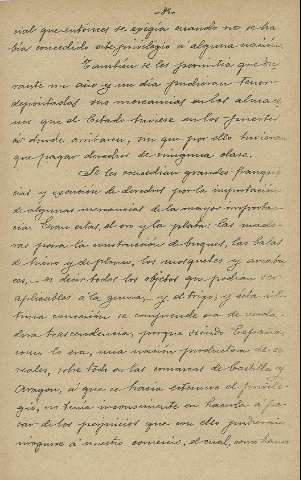 nal que entonces se exigía cuando no se ha-
bía concedido este privilegio a alguna nación.
También se les permitía que du-
rante un año y un día pudieran tener
depositadas sus mercancías en los almace-
nes que el Estado tuviese en los puertos
á donde arribaran, sin que por ello tuvieran
que pagar derechos de ninguna clase.
Se les concedían grandes franqui-
cias y exención de derechos por la importación
de algunas mercancías de la mayor importan-
cia. Eran estas el oro y la plata; las made-
ras para la construcción de buques, las balas
de hierro y de plomo, los mosquetes y arcabu-
ces, es decir todos los objetos que podían ser
aplicables á la guerra, y el trigo; y esta úl-
tima concesión se comprende era de verda-
dera trascendencia, porque siendo España,
como lo era, una nación productora de ce-
reales, sobre todo en las comarcas de Castilla y
Aragón, á que se hacía extensivo el privile-
gio, no tenía inconveniente en hacerla á pe-
sar de los perjuicios que con ello pudieran
irrogarse á nuestro comercio, el cual, como